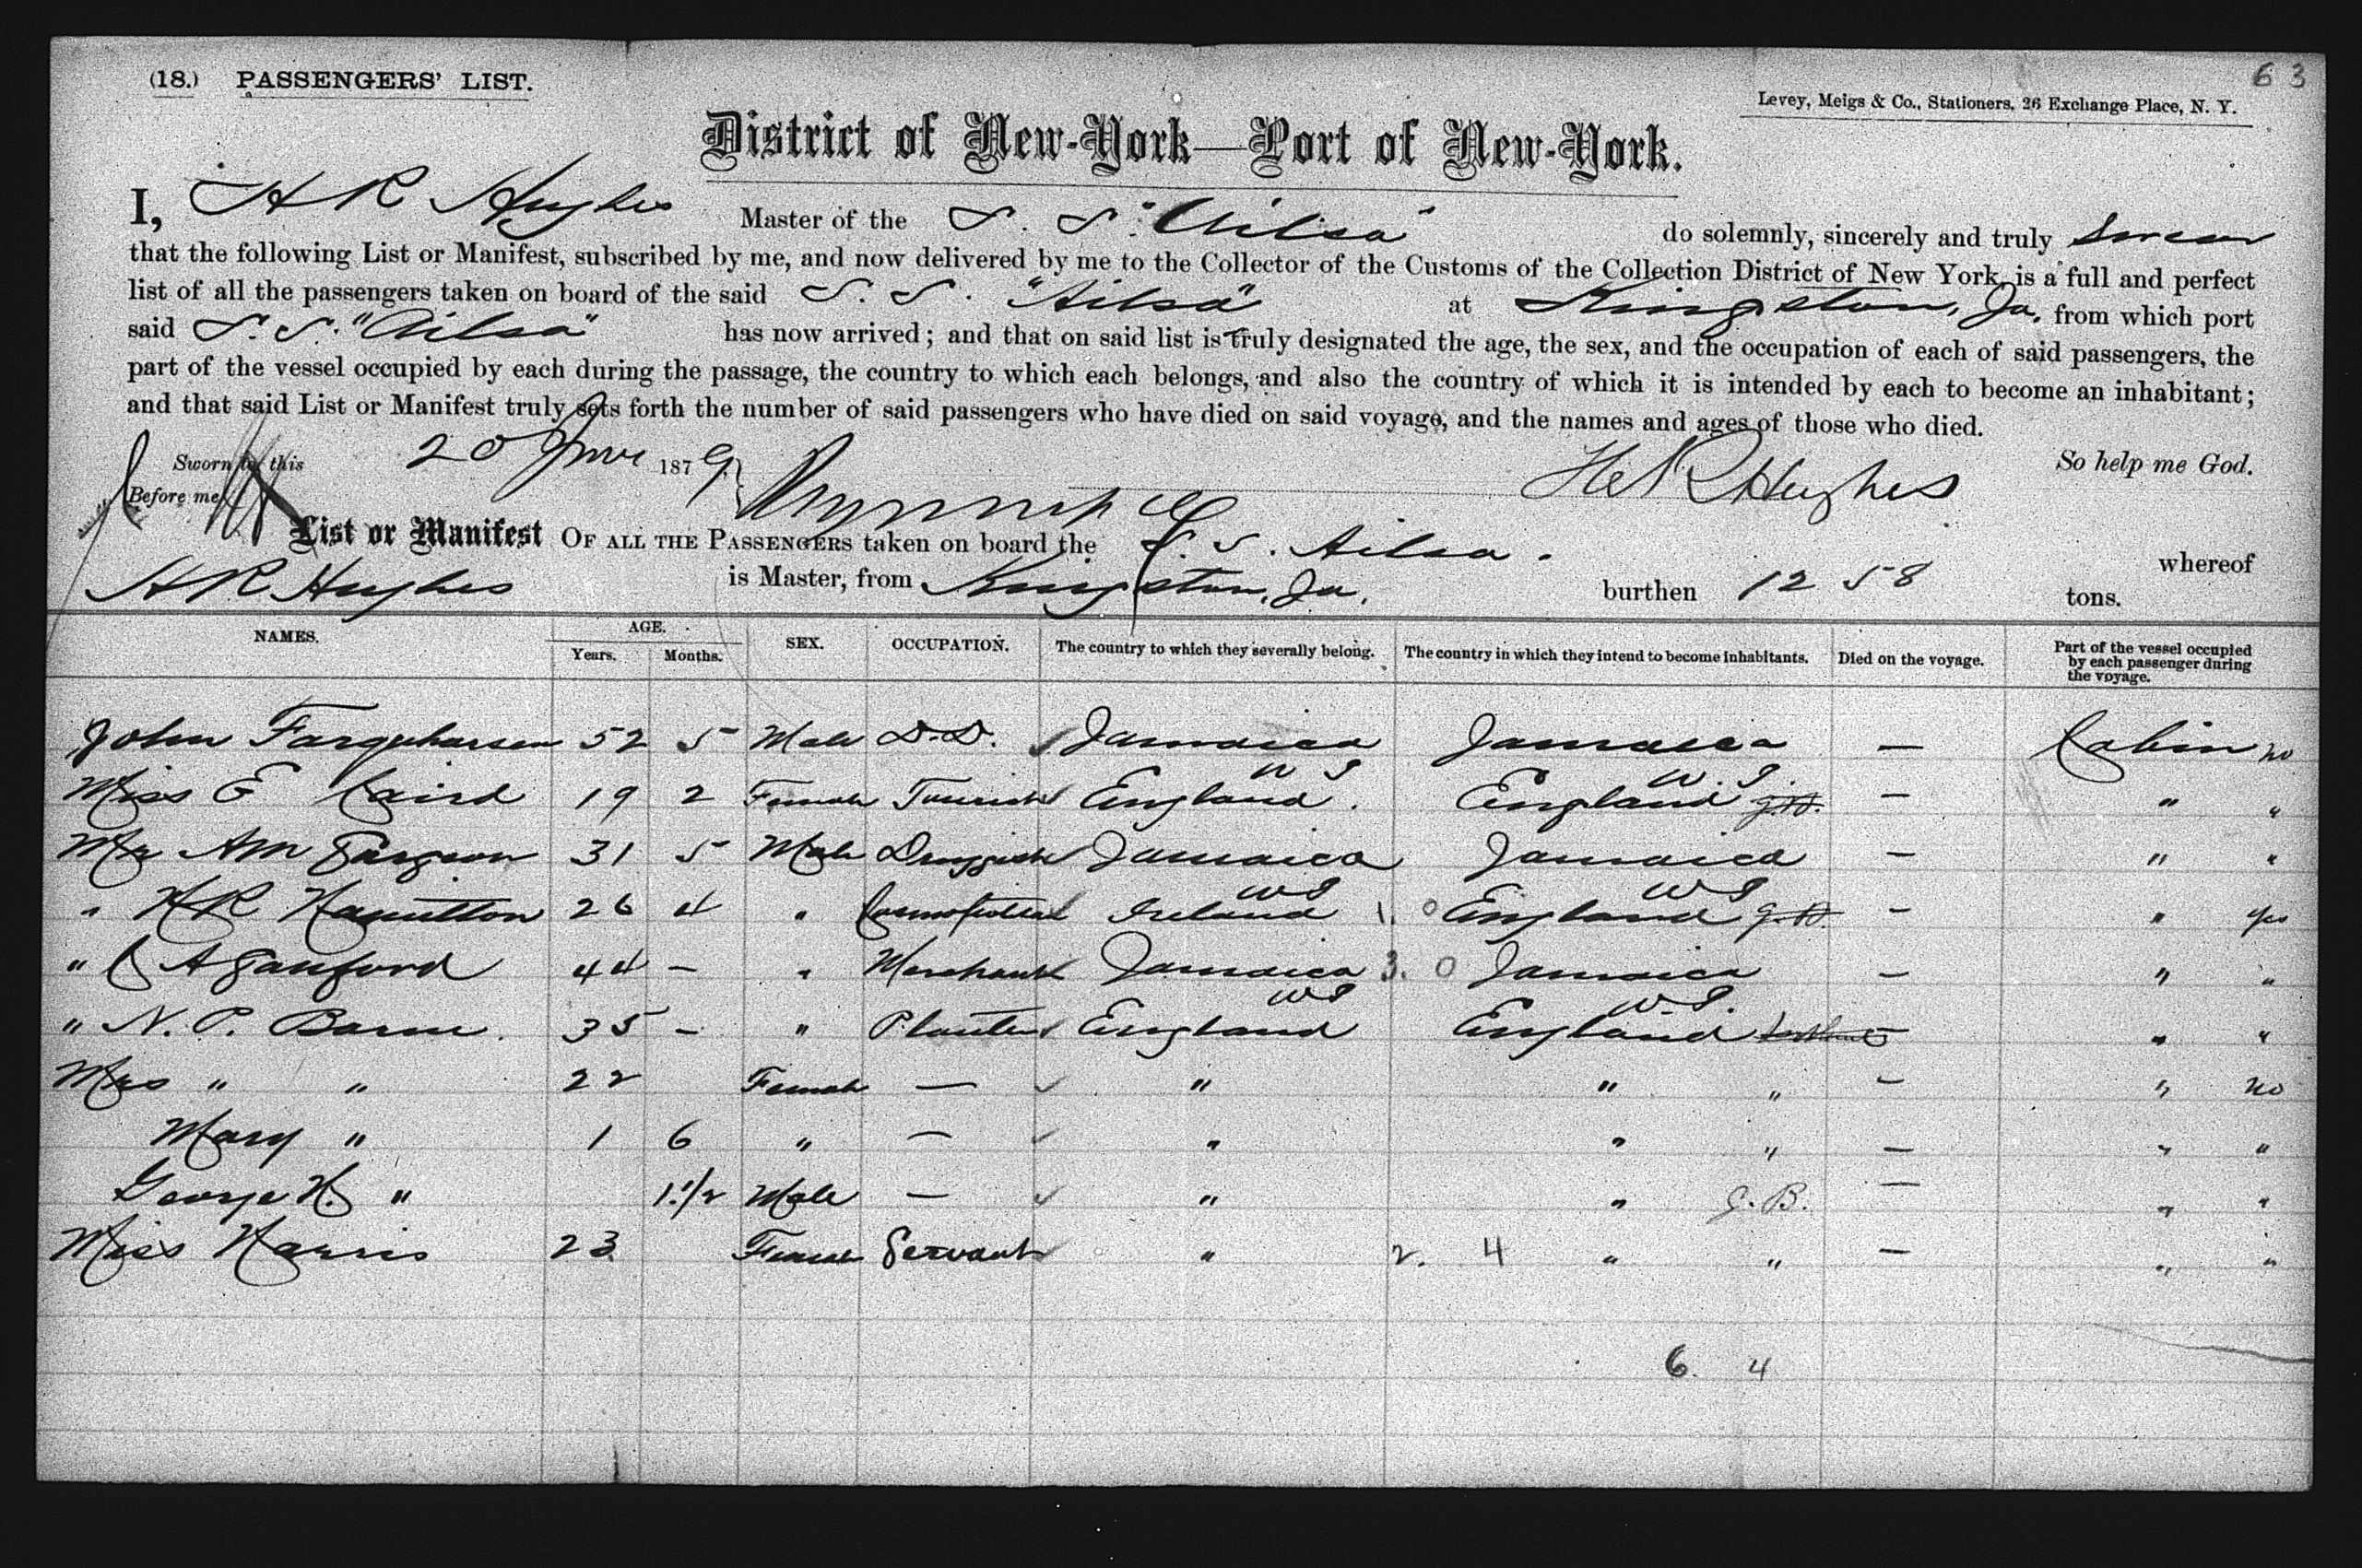 63
(18.) PASSENGERS' LIST.
Levey, Meigs & Co., Stationers, 26 Exchange Place, N. Y.
District of New-York—Port of New-York.
I, H R Hughes Master of the S. S. "Ailsa" do solemnly, sincerely and truly swear
that the following List or Manifest, subscribed by me, and now delivered by me to the Collector of the Customs of the Collection District of New York, is a full and perfect
list of all the passengers taken on board of the said S. S. "Ailsa" at Kingston, Ja. from which port
said S. S. "Ailsa" has now arrived; and that on said list is truly designated the age, the sex, and the occupation of each of said passengers, the
part of the vessel occupied by each during the passage, the country to which each belongs, and also the country of which it is intended by each to become an inhabitant;
and that said List or Manifest truly sets forth the number of said passengers who have died on said voyage, and the names and ages of those who died.
Sworn to this 20 June 1879 So help me God.
Before me HR Hughes
List or Manifest OF ALL THE PASSENGERS taken on board the S. S. Ailsa. whereof
H R Hughes is Master, from Kingston, Ja. burthen 1258 tons.
NAMES. AGE. SEX. OCCUPATION. The country to which they severally belong. The country in which they intend to become inhabitants. Died on the voyage. Part of the vessel occupied by each passenger during the voyage.
Years. Months.
John Farquharson 52 5 Male D.D. Jamaica Jamaica — Cabin no
W I W. I.
Miss E Caird 19 2 Female Tourist England. England — " "
Mr AM 31 5 Male Druggist Jamaica Jamaica — " "
W I W I
" HR Hamilton 26 4 " Ireland 1. 0 England — " yes
" 44 — " Merchant Jamaica 3. 0 Jamaica — " "
W I W. I.
" N. P. 35 — " Planter England England — " "
Mrs " " 22 Female — " " " — " no
Mary " 1 6 " — " " " — " "
George H. " 1.1/2 Male — " " G. B. — " "
Miss Harris 23 Female Servant " 2. 4 " " — " "
6. 4